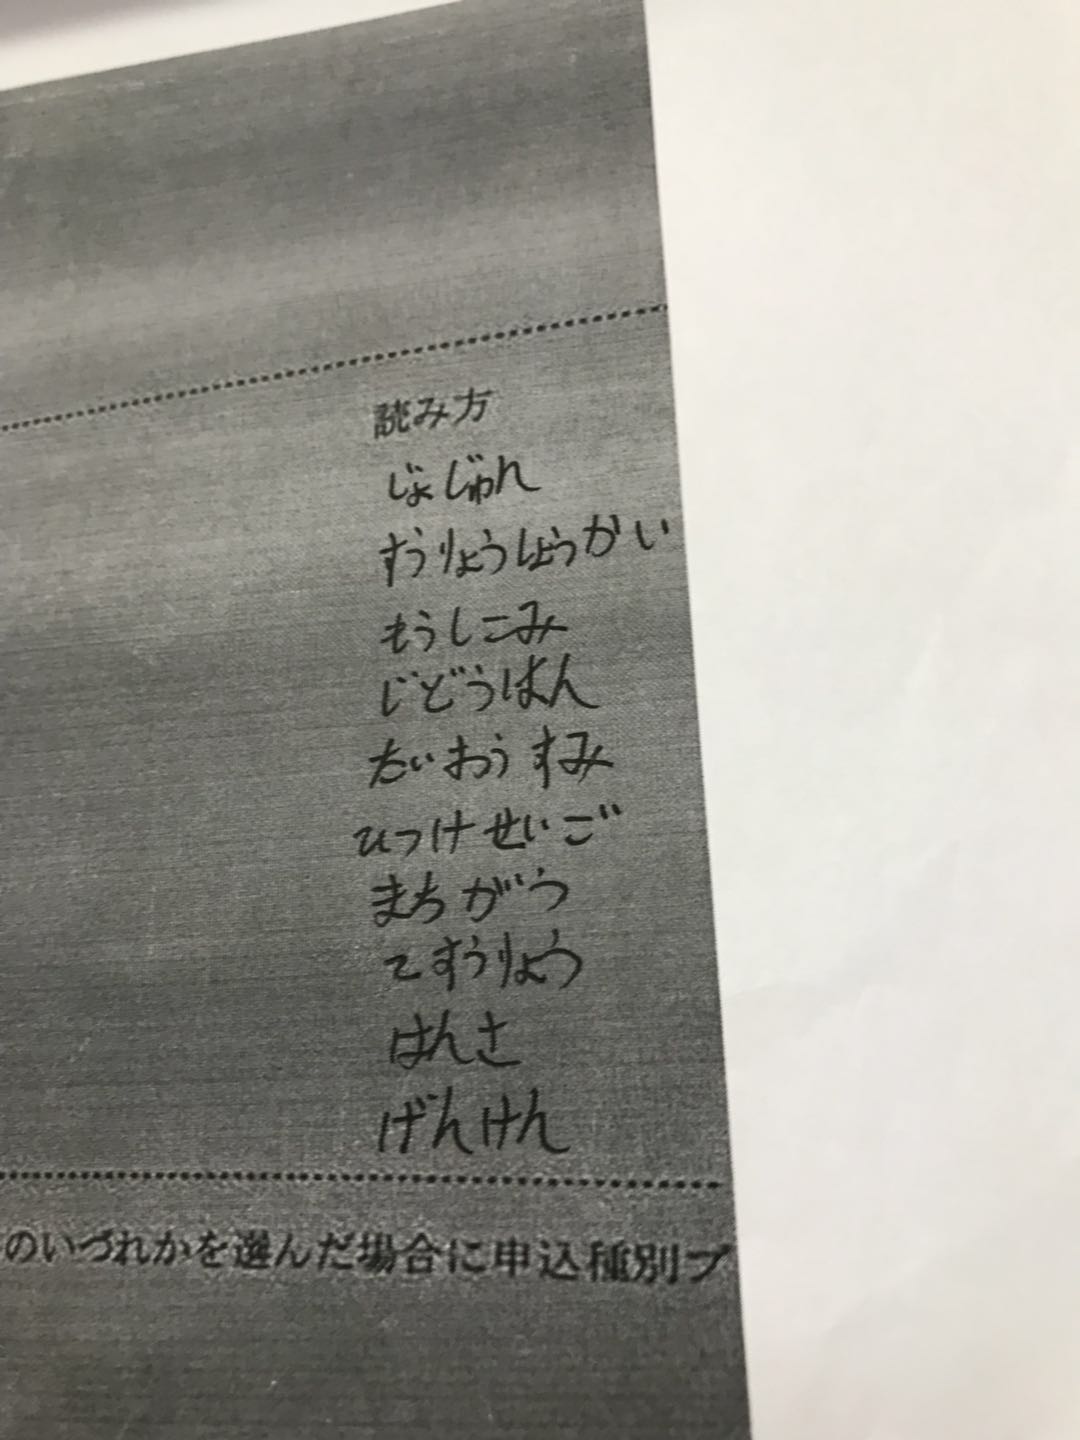 読み方
じょじゅん
すうりょうしょうがい
もうしこみ
じどうはん
たいおうすみ
ひつけせいご
まちがう
てすうりょう
はんさ
げんけん
のいづれかを選んだ場合に申込種別プ